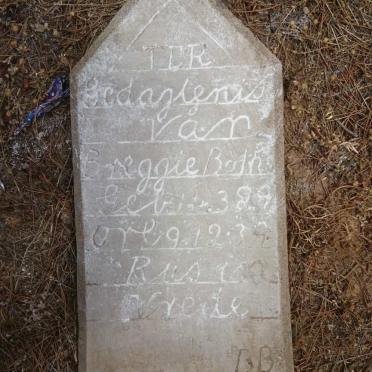 TER
Gedagtenis
Van
Breggie Both
Geb
Orl 9.12.39
Rus in
Vrede